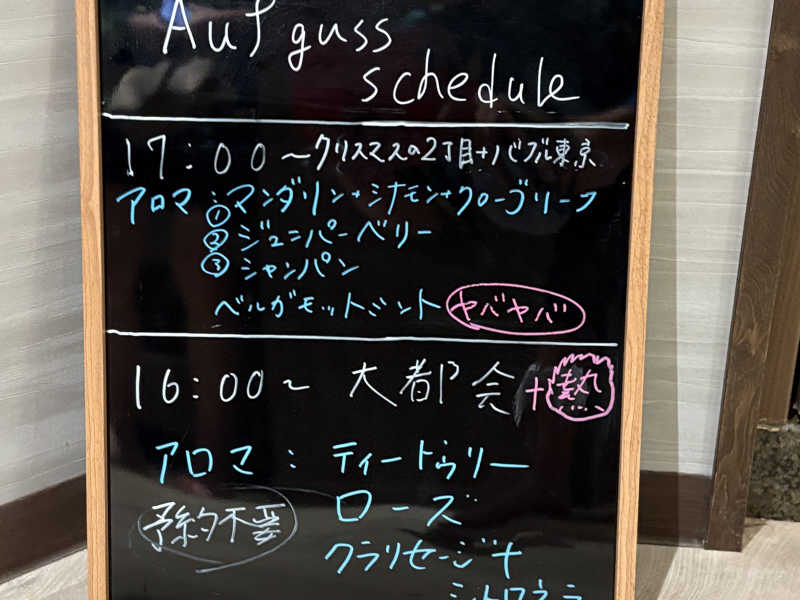 Aufguss
schedule
17:00〜クリスマスの2丁目+バブル東京
アロマ:①マンダリン+シナモン+クローブリーフ
②ジュニパーベリー
③シャンパン
ベルガモットミント ヤバヤバ
16:00〜 大都会+熱
アロマ: ティートゥリー
ローズ
予約不要
クラリセージ+
シトロネラ